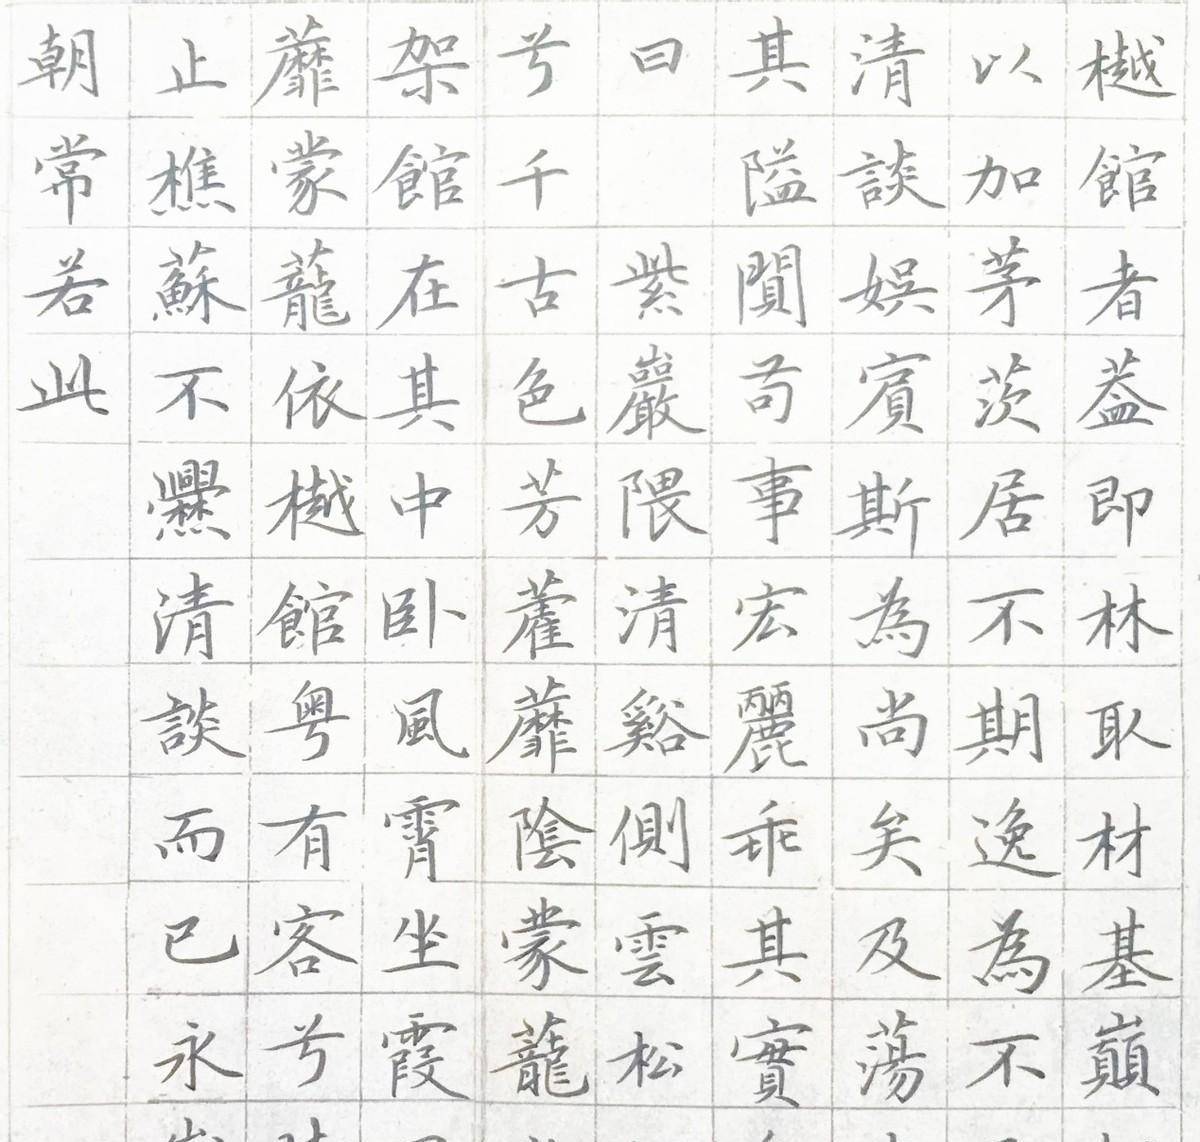 樾館者蓋即林取材基巔
以加茅茨居不期逸為不
清談娛賓斯為尚矣及蕩
其隘闃苟事宏麗乖其實
曰　紫巖隈清谿側雲松
兮千古色芳藿蘼陰蒙蘢
架館在其中卧風霄坐霞
蘼蒙蘢依樾館粵有客兮
止樵蘇不爨清談而已永
朝常若此